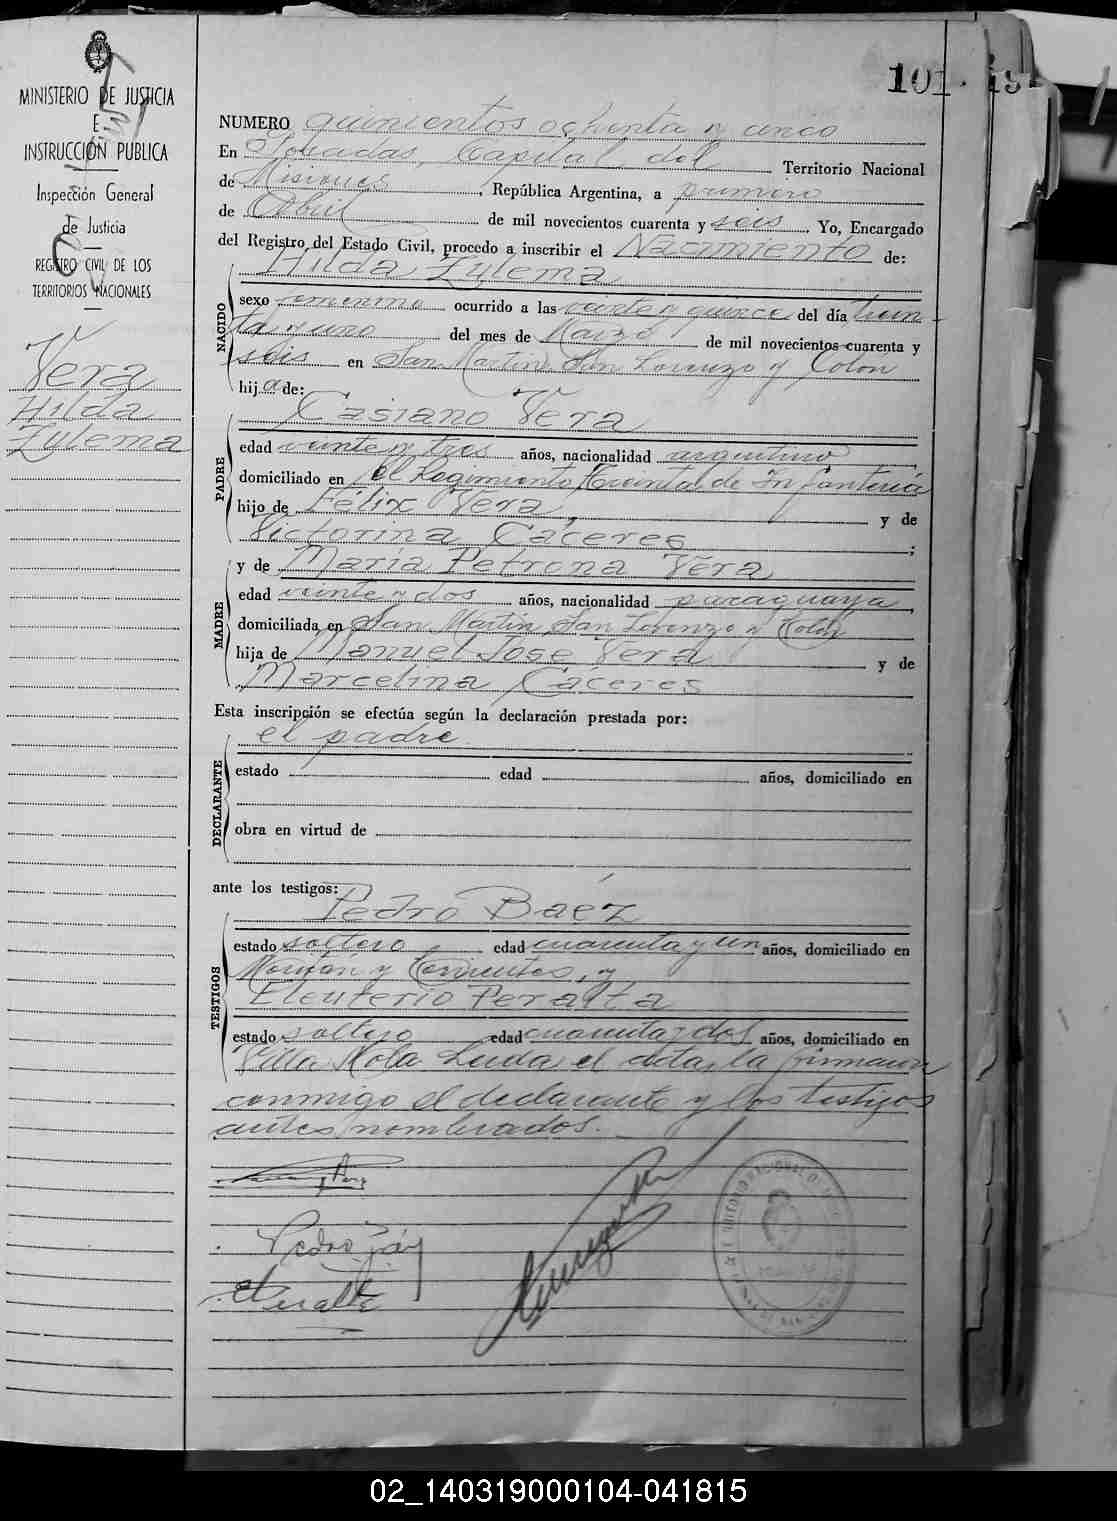 101
MINISTERIO DE JUSTICIA
E
INSTRUCCIÓN PUBLICA
Inspección General
de Justicia
REGISTRO CIVIL DE LOS
TERRITORIOS NACIONALES
Vera
Hilda
Zylema
NUMERO quinientos ochenta y cinco
En Posadas, Capital del Territorio Nacional
de Misiones, República Argentina, a primero
de Abril de mil novecientos cuarenta y seis. Yo, Encargado
del Registro del Estado Civil, procedo a inscribir el Nacimiento de:
NACIDO
Hilda Zylema
sexo femenino ocurrido a las veinte y quince del día trein-
ta y uno del mes de Marzo de mil novecientos cuarenta y
seis en San Martin, San Lorenzo y Colon
hija de:
PADRE
Casiano Vera
edad veinte y tres años, nacionalidad argentino
domiciliado en el Regimiento Treinta de Infantería
hijo de Félix Vera, y de
Victorina Cáceres;
MADRE
y de María Petrona Vera
edad veinte y dos años, nacionalidad paraguaya,
domiciliada en San Martin, San Lorenzo y Colón
hija de Manuel José Vera y de
Marcelina Cáceres
Esta inscripción se efectúa según la declaración prestada por:
DECLARANTE
el padre.
estado edad años, domiciliado en
obra en virtud de
ante los testigos:
TESTIGOS
Pedro Baéz
estado soltero edad cuarenta y un años, domiciliado en
y Corrientes, y
Eleuterio Peralta
estado soltero edad cuarenta y dos años, domiciliado en
Villa Leida el acta, la firmaron
conmigo el declarante y los testigos
antes nombrados.
Pedro Báez
E Peralta
02_140319000104-041815